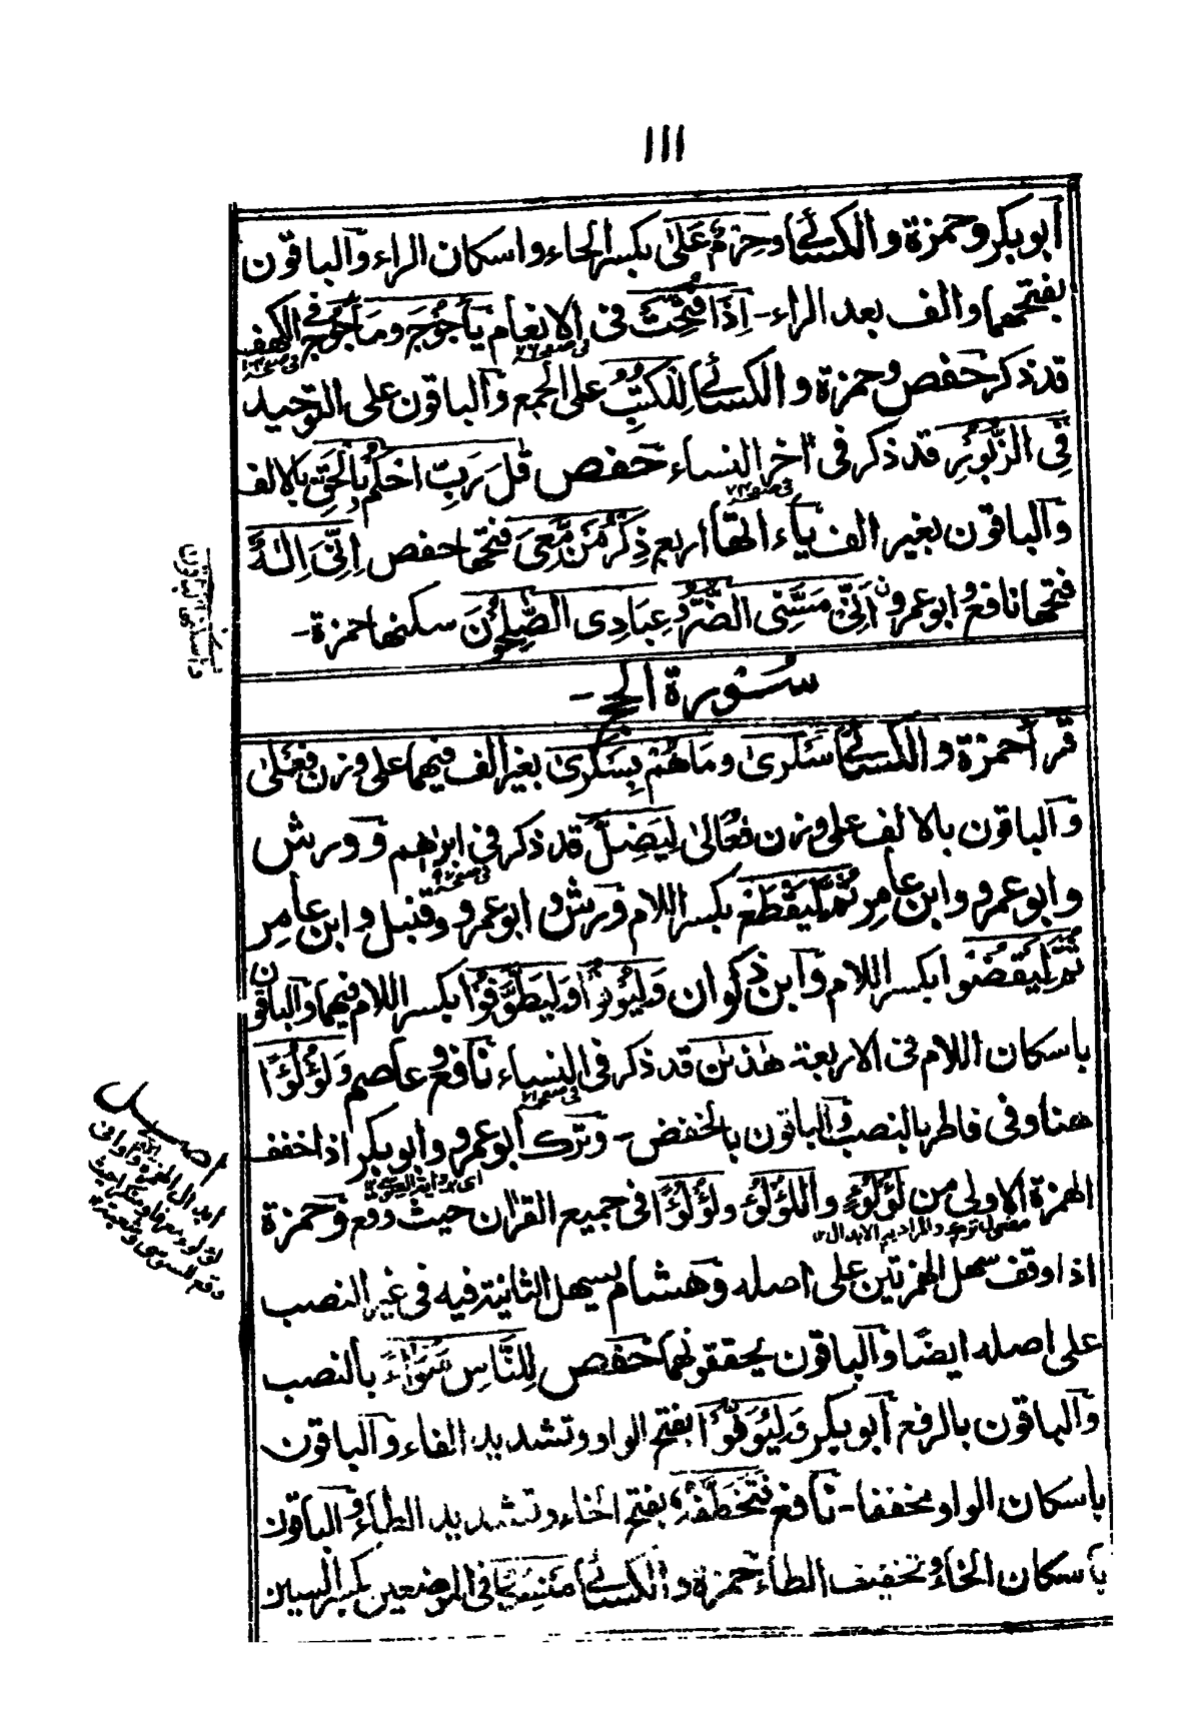 ١١١
ابوبكر وحمزة والكسائى وحِرْمٌ عَلٰى بكسر الحاء واسكان الراء والباقون
بفتحهما والف بعد الراء - اِذَا فُتِحَتْ فى الانعام يَاْجُوْجَ وَمَاْجُوْجَ فى الكهف
قد ذكر حفص وحمزة والكسائى لِلْكُتُبِ على الجمع والباقون على التوحيد
فِى الزَّبُوْرِ قد ذكر فى اٰخر النساء حفص قٰلَ رَبِّ احْكُمْ بِالْحَقِّ بالالف
والباقون بغير الف ياء اتها اربع ذِكْرُ مَنْ مَّعِىَ فتحها حفص اِنِّىَ اِلٰهٌ
فتحها نافع وابو عمرو اَنِّىْ مَسَّنِىَ الضُّرُّ وَ عِبَادِىَ الصّٰلِحُوْنَ سكنها حمزة -
سُوْرة الحج -
قرأ حمزة والكسائى سَكْرٰى وَمَا هُمْ بِسَكْرٰى بغير الف فيهما على وزن فَعْلٰى
والباقون بالالف على وزن فُعَالٰى لِيَضِلَّ قد ذكر فى ابرٰهيم وورش
وابو عمرو وابن عامر ثُمَّ لِيَقْطَعْ بكسر اللام وورش وابو عمرو وقنبل وابن عامر
ثُمَّ لِيَقْضُوْا بكسر اللام وابن ذكوان وَلِيُوْفُوْا وَلِيَطَّوَّفُوْا بكسر اللام فيهما والباقون
باسكان اللام فى الاربعة هٰذٰنِ قد ذكر فى النساء نافع وعاصم وَلُؤْلُؤًا
هنا وفى فاطر بالنصب والباقون بالخفض - وترك ابو عمرو وابو بكر اذا خفف
الهمزة الاولى من لُؤْلُؤٍ واللُّؤْلُؤُ ولُؤْلُؤًا فى جميع القراٰن حيث وقع وحمزة
اذا وقف سهل الهمزتين على اصله وهشام يسهل الثانية فيه فى غير النصب
على اصله ايضًا والباقون يحققونهما حفص لِلنَّاسِ سَوَآءً بالنصب
والباقون بالرفع ابو بكر وَلِيُوَفُّوْا بفتح الواو وتشديد الفاء والباقون
باسكان الواو مخففا - نافع فَتَخَطَّفُهُ بفتح الخاء وتشديد الطاء والباقون
باسكان الخاء وتخفيف الطاء حمزة والكسائى مَنْسِكًا فى الموضعين بكسر السين